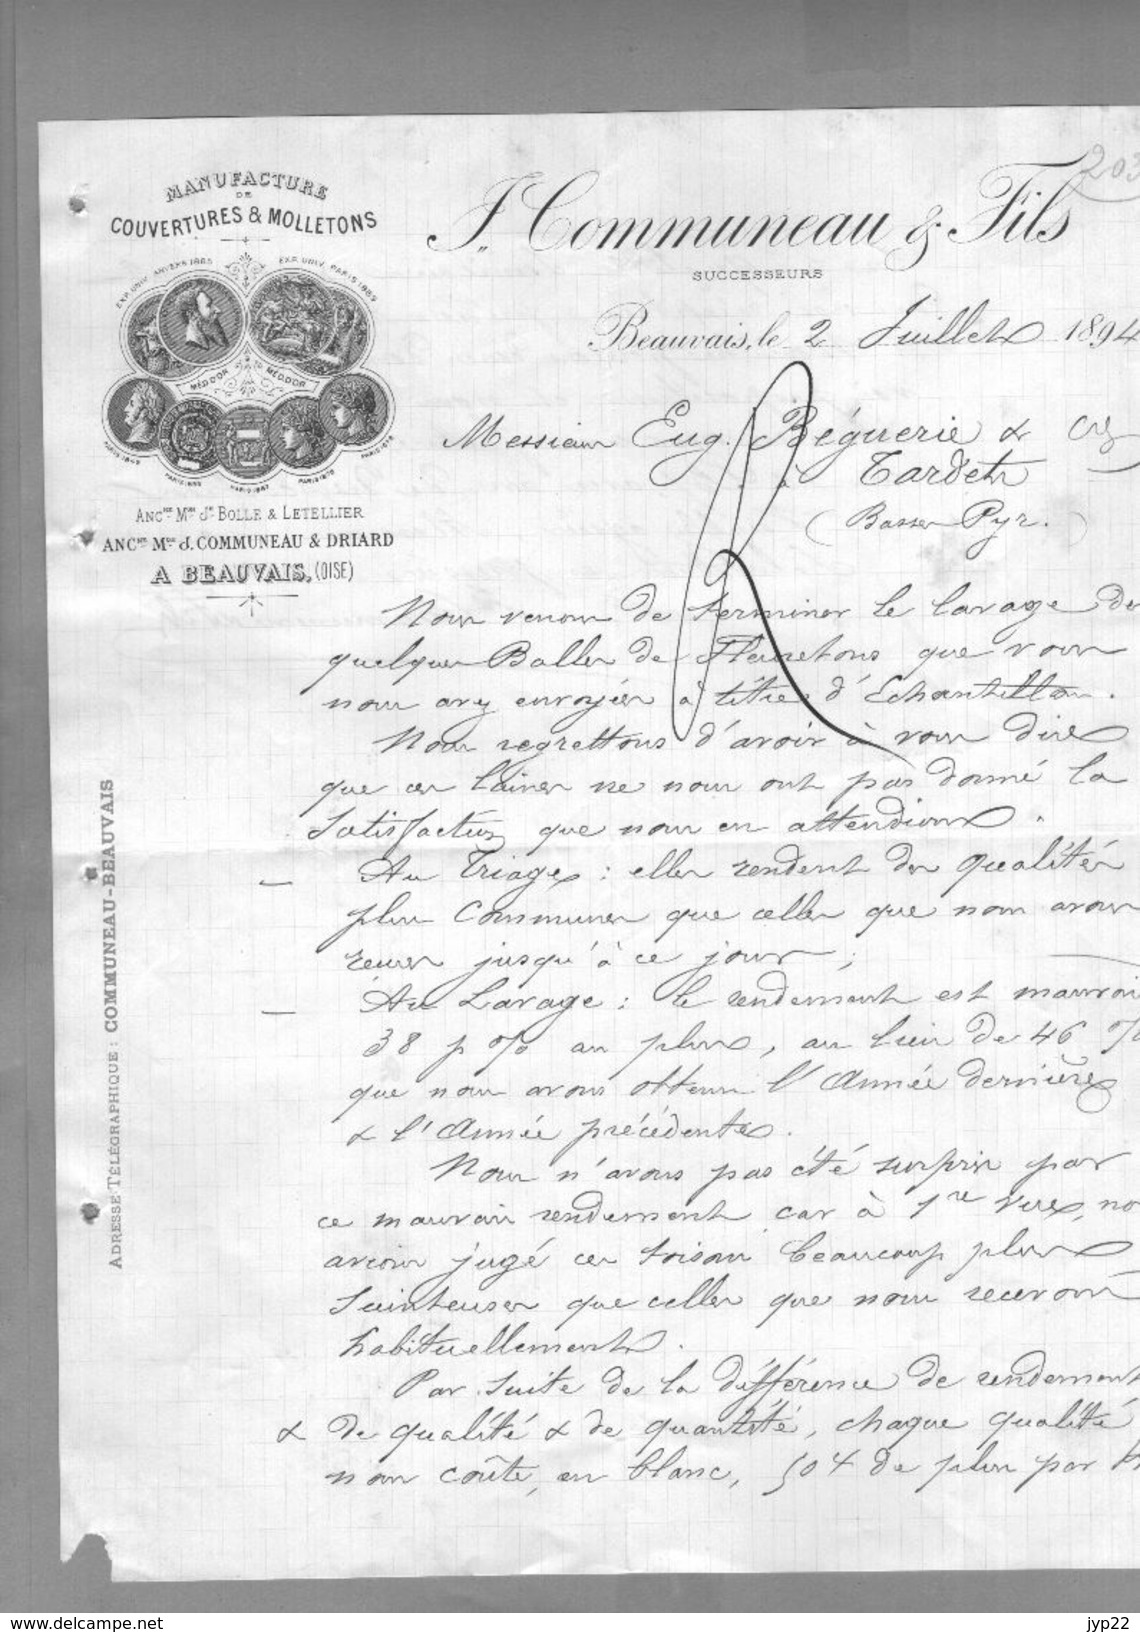 203
MANUFACTURE
DE
COUVERTURES & MOLLETONS
EXP. UNIV. ANVERS 1885
EXP. UNIV. PARIS 1889
MÉD. D'OR
MÉD. D'OR
PARIS 1849
PARIS 1855
PARIS 1867
PARIS 1878
PARIS 1878
ANC.NE M.ON J.H BOLLE & LETELLIER
ANC.NE M.ON J. COMMUNEAU & DRIARD
A BEAUVAIS, (OISE)
J. Communeau & Fils
SUCCESSEURS
Beauvais, le 2 Juillet 1894
Messieurs Eug. Béguerie & Cie
à Tardets
(Basses Pyr.)
Nous venons de terminer le lavage des
quelques Balles de Fleuretons que vous
nous avez envoyées à titre d'Echantillon.
Nous regrettons d'avoir à vous dire
que ces laines ne nous ont pas donné la
Satisfaction que nous en attendions.
— Au Triage : elles rendent des qualités
plus Communes que celles que nous avons
reçues jusqu'à ce jour ;
— Au Lavage : le rendement est mauvais
38 p % au plus, au lieu de 46 %
que nous avons obtenu l'Année dernière
& l'Année précédente.
Nous n'avons pas été surpris par
ce mauvais rendement car à 1re vue, no
avions jugé ces toisons beaucoup plus
Suinteuses que celles que nous recevons
habituellement.
Par Suite de la différence de rendement
& de qualité & de quantité, chaque qualité
nous coûte, en blanc, 50 % de plus par K
ADRESSE TÉLÉGRAPHIQUE : COMMUNEAU-BEAUVAIS
www.delcampe.net
jyp22